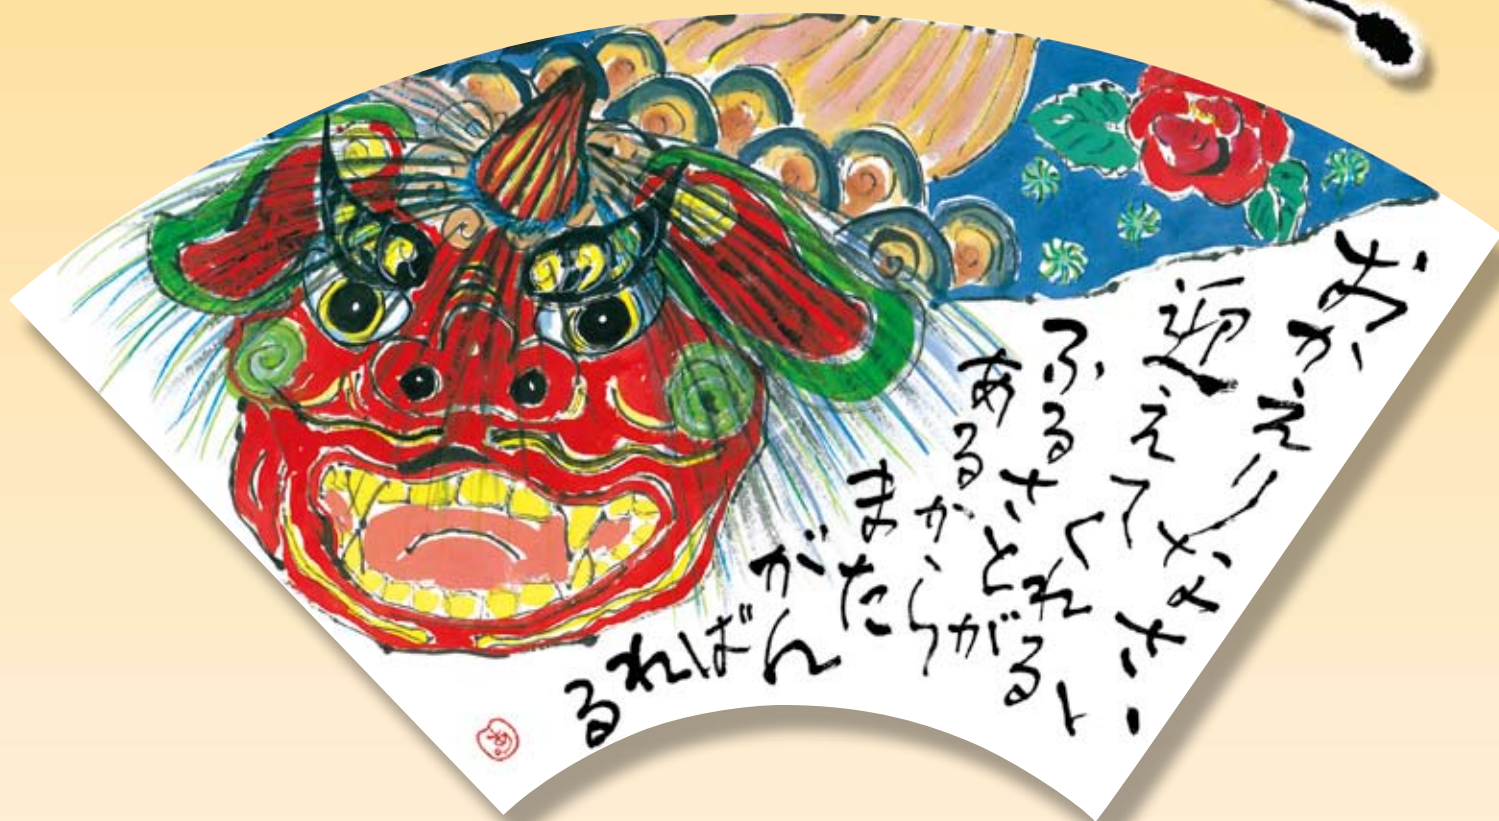 おかえりなさい
迎えてくれる
ふるさとが
あるから
また
がんばれる